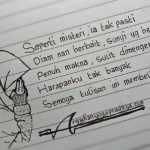 Seperti misteri, ia tak pasti
Diam nan berbait, sunyi yg ba
Penuh makna, sulit dimenger
Harapanku tak banyak
Semoga tulisan ini membe